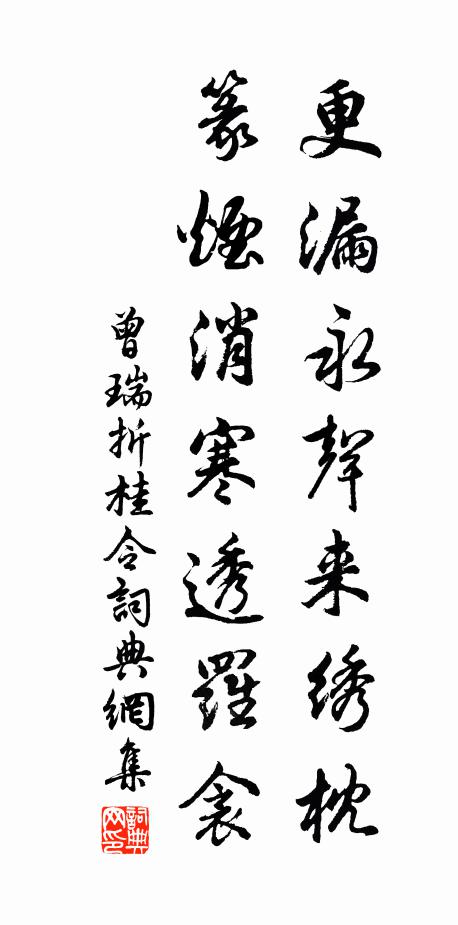 更漏永聲来绣枕
篆煙消寒透羅衾
曾瑞折桂令詞典網集
詞典网印